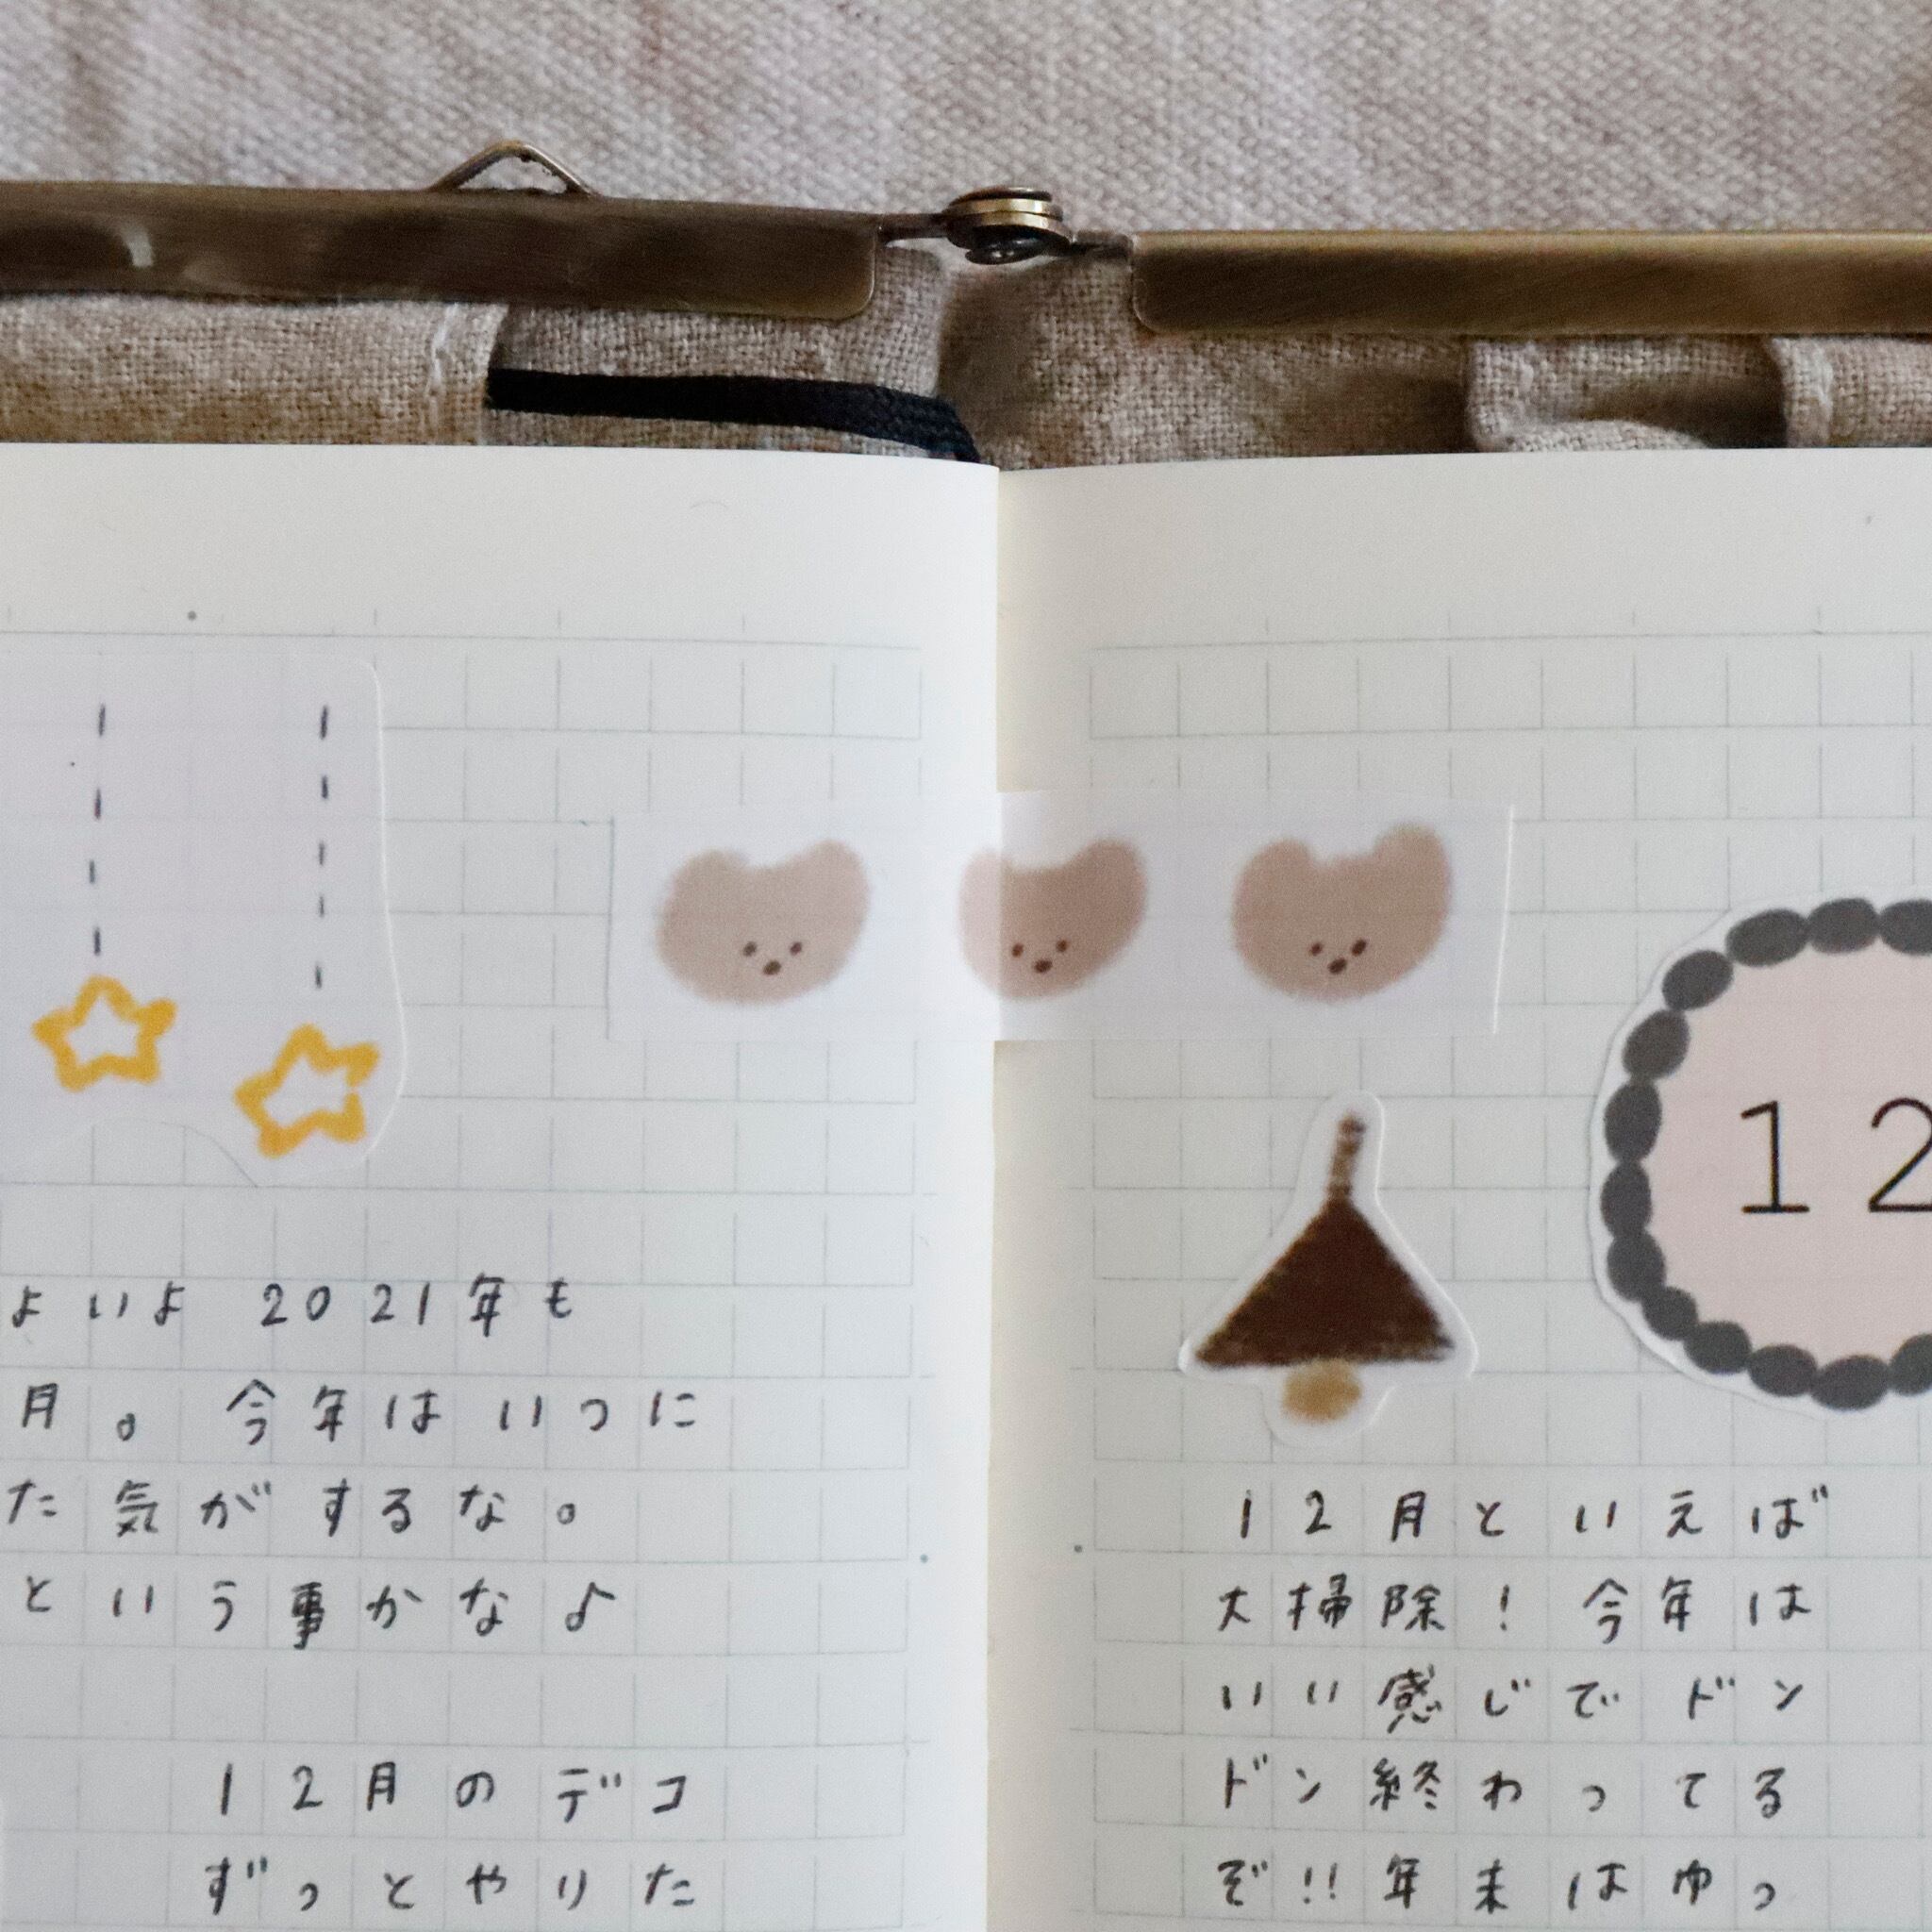 よいよ 2021年も
月。今年はいつに
た気がするな。
という事かな♪
12月のデコ
ずっとやりた
12
12月といえば
大掃除！今年は
いい感じでドン
ドン終わってる
ぞ!!年末はゆっ